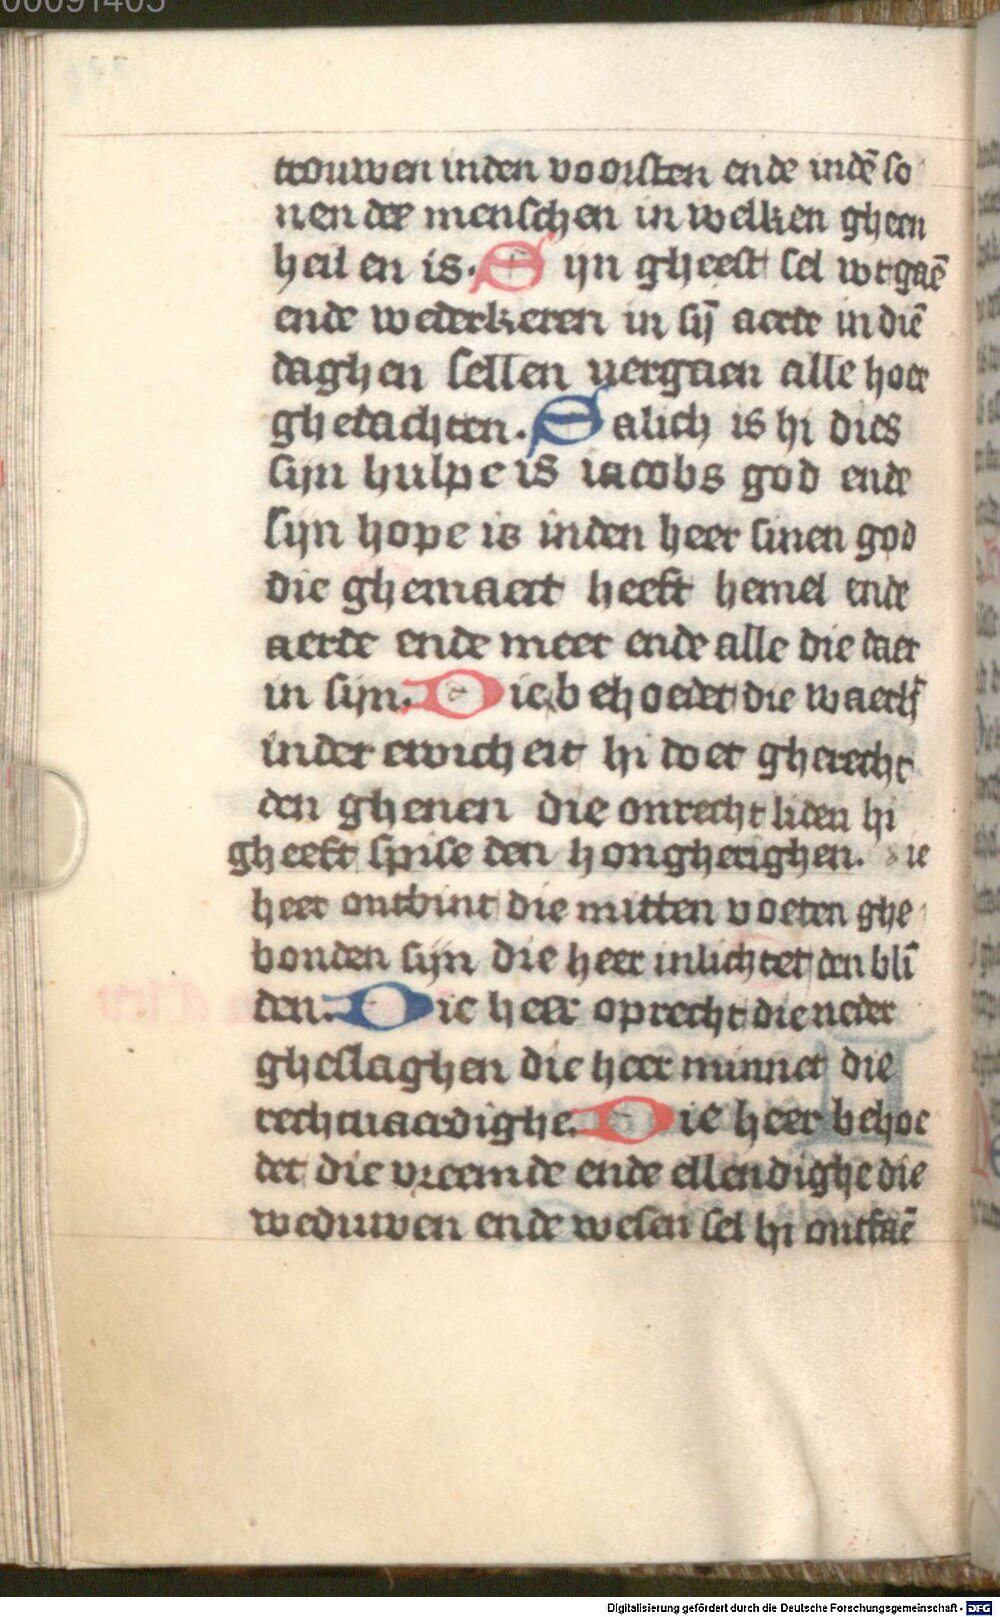 00091405
trouwen inden voorsten ende indē so
nen der menschen in welken gheen
heil en is. Sijn gheest sel wtgaē
ende wederkeren in sij̄ aerde in diē
daghen sellen vergaen alle hoer
ghedachten. Salich is hi dies
sijn hulpe is iacobs god ende
sijn hope is inden heer sinen god
die ghemaect heeft hemel ende
aerde ende meer ende alle die daer
in sijn. Die behoedet die waerh̄
inder ewicheit hi doet gherecht
den ghenen die onrecht liden hi
gheeft spise den hongherighen. die
heer ontbint die mitten voeten ghe
bonden sijn die heer inlichtet den bli̅
den. Die heer oprecht die neder
gheslaghen die heer minnet die
rechtuaerdighe. Die heer behoe
det die vreemde ende ellendighe die
weduwen ende wesen sel hi ontfaē
Digitalisierung gefördert durch die Deutsche Forschungsgemeinschaft - DFG